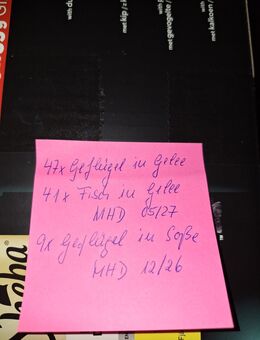 with kip / 
met gevogelte
with
met kalkoen /
47x Geflügel in Gelee
41x Fisch in Gelee
MHD 05/27
9x Geflügel in Soße
MHD 12/26
heba